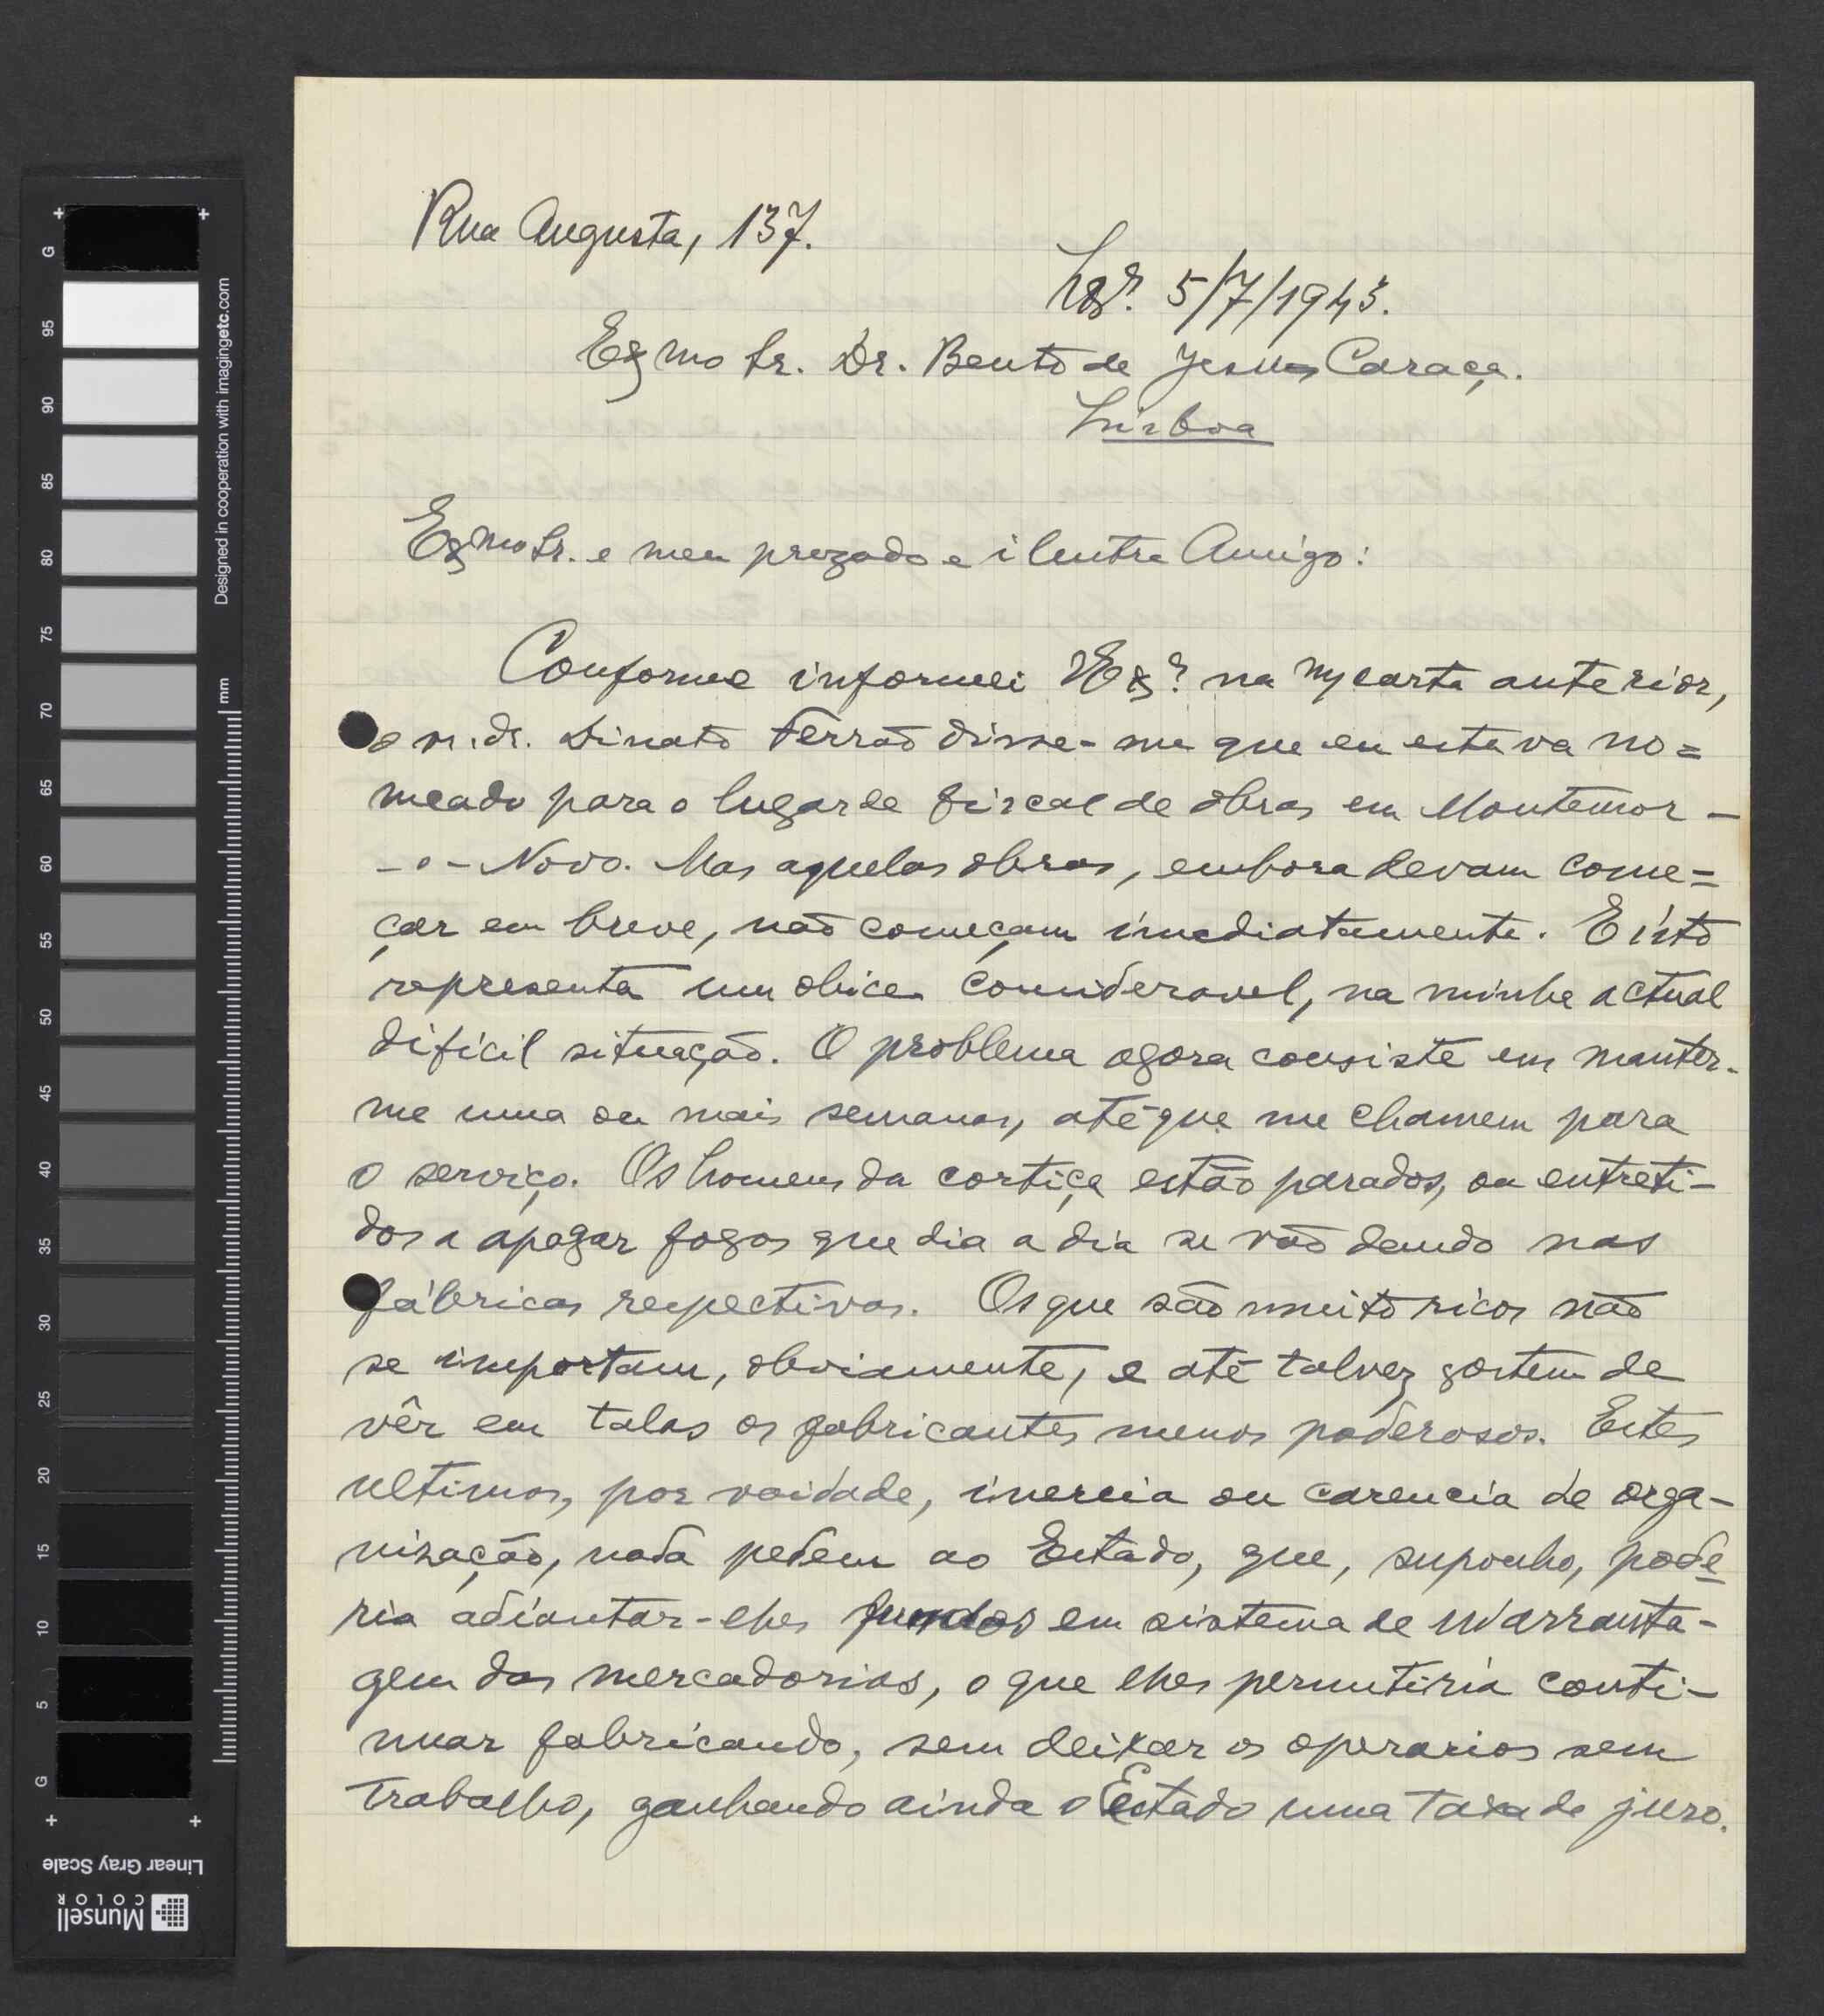 Rua Augusta, 137.
Lxª. 5/7/1943.
Exmo Sr. Dr. Bento de Jesus Caraça.
Lisboa
Exmo Sr. e meu prezado e ilustre Amigo:
Conforme informei VExª na m/ carta anterior,
o sr. dr. Dinato Ferrão disse-me que eu estava no=
meado para o lugar de fiscal de obras em Montemor-
-o-Novo. Mas aquelas obras, embora devam come=
çar em breve, não começam imediatamente. E isto
representa um obice consideravel, na minha actual
difícil situação. O problema agora consiste em manter-
me uma ou mais semanas, até que me chamem para
o serviço. Os homens da cortiça estão parados, ou entreti-
dos a apagar fogos que dia a dia se vão dando nas
fábricas respectivas. Os que são muito ricos não
se importam, obviamente, e até talvez gostem de
vêr em talas os fabricantes menos poderosos. Estes
ultimos, por vaidade, inercia ou carencia de orga-
nização, nada pedem ao Estado, que, suponho, pode
ria adiantar-lhes fundos em sistema de warranta-
gem das mercadorias, o que lhes permitiria conti-
nuar fabricando, sem deixar os operarios sem
trabalho, ganhando ainda o Estado uma taxa de juro.
G
95
90
85
80
75
70
65
60
55
50
45
40
35
30
25
20
15
10
5
G
mm
Designed in cooperation with imagingetc.com
Linear Gray Scale
Munsell
COLOR